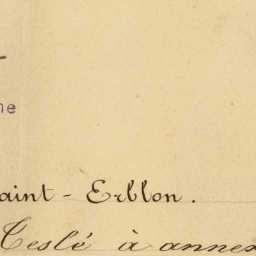 ne
aint - Erblon.
Teslé à annex